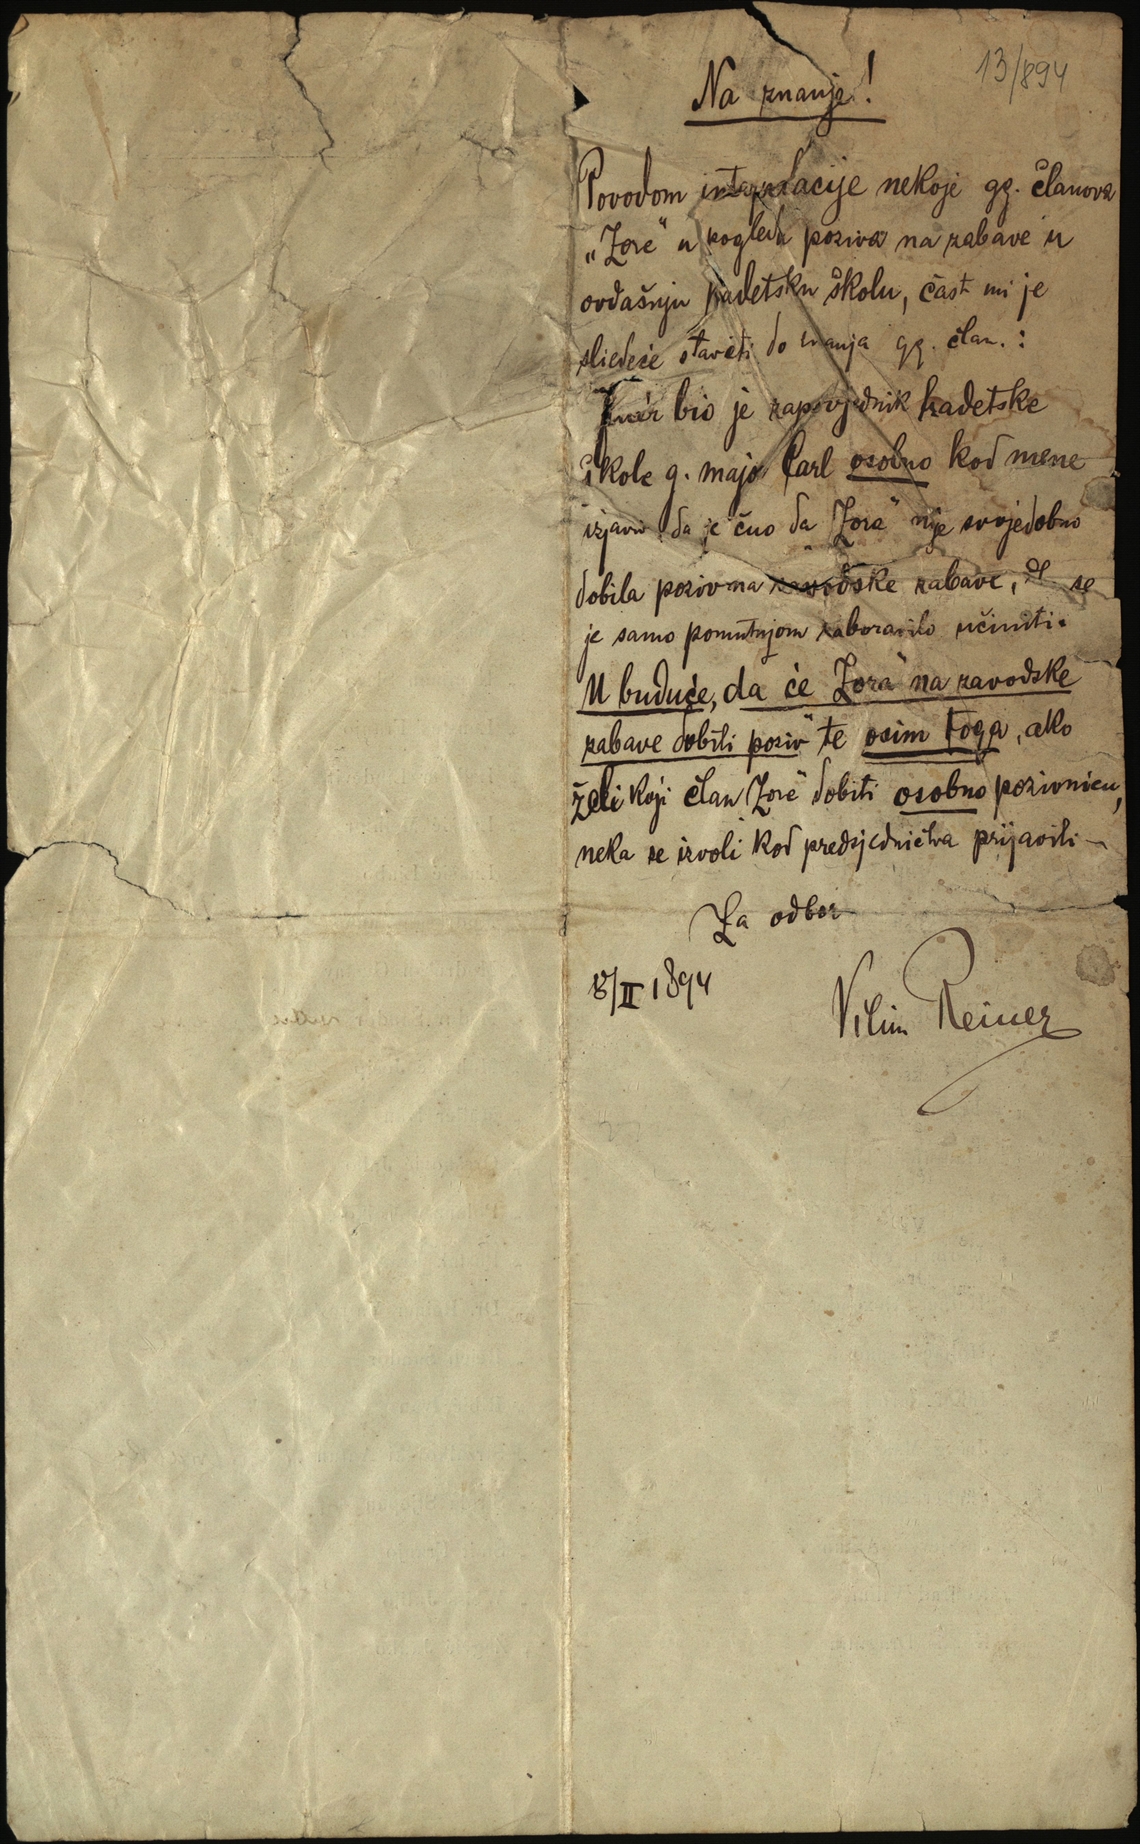 13/894
Na znanje!
Povodom interpelacije nekoje gg. članova
„Zore" u pogledu poziva na zabave u
ovdašnju kadetsku školu, čast mi je
sliedeće staviti do znanja gg. član.:
Jučer bio je zapovjednik kadetske
škole g. major Carl osobno kod mene
izjaviv da je čuo da „Zora" nije svojedobno
dobila poziv na zavodske zabave, se
je samo pomutnjom zaboravilo učiniti.
U buduće, da će „Zora" na zavodske
zabave dobiti poziv te osim toga, ako
želi koji član „Zore" dobiti osobno pozivnicu,
neka se izvoli kod predsjedničtva prijaviti –
Za odbor
8/II 1894
Vilim Reiner